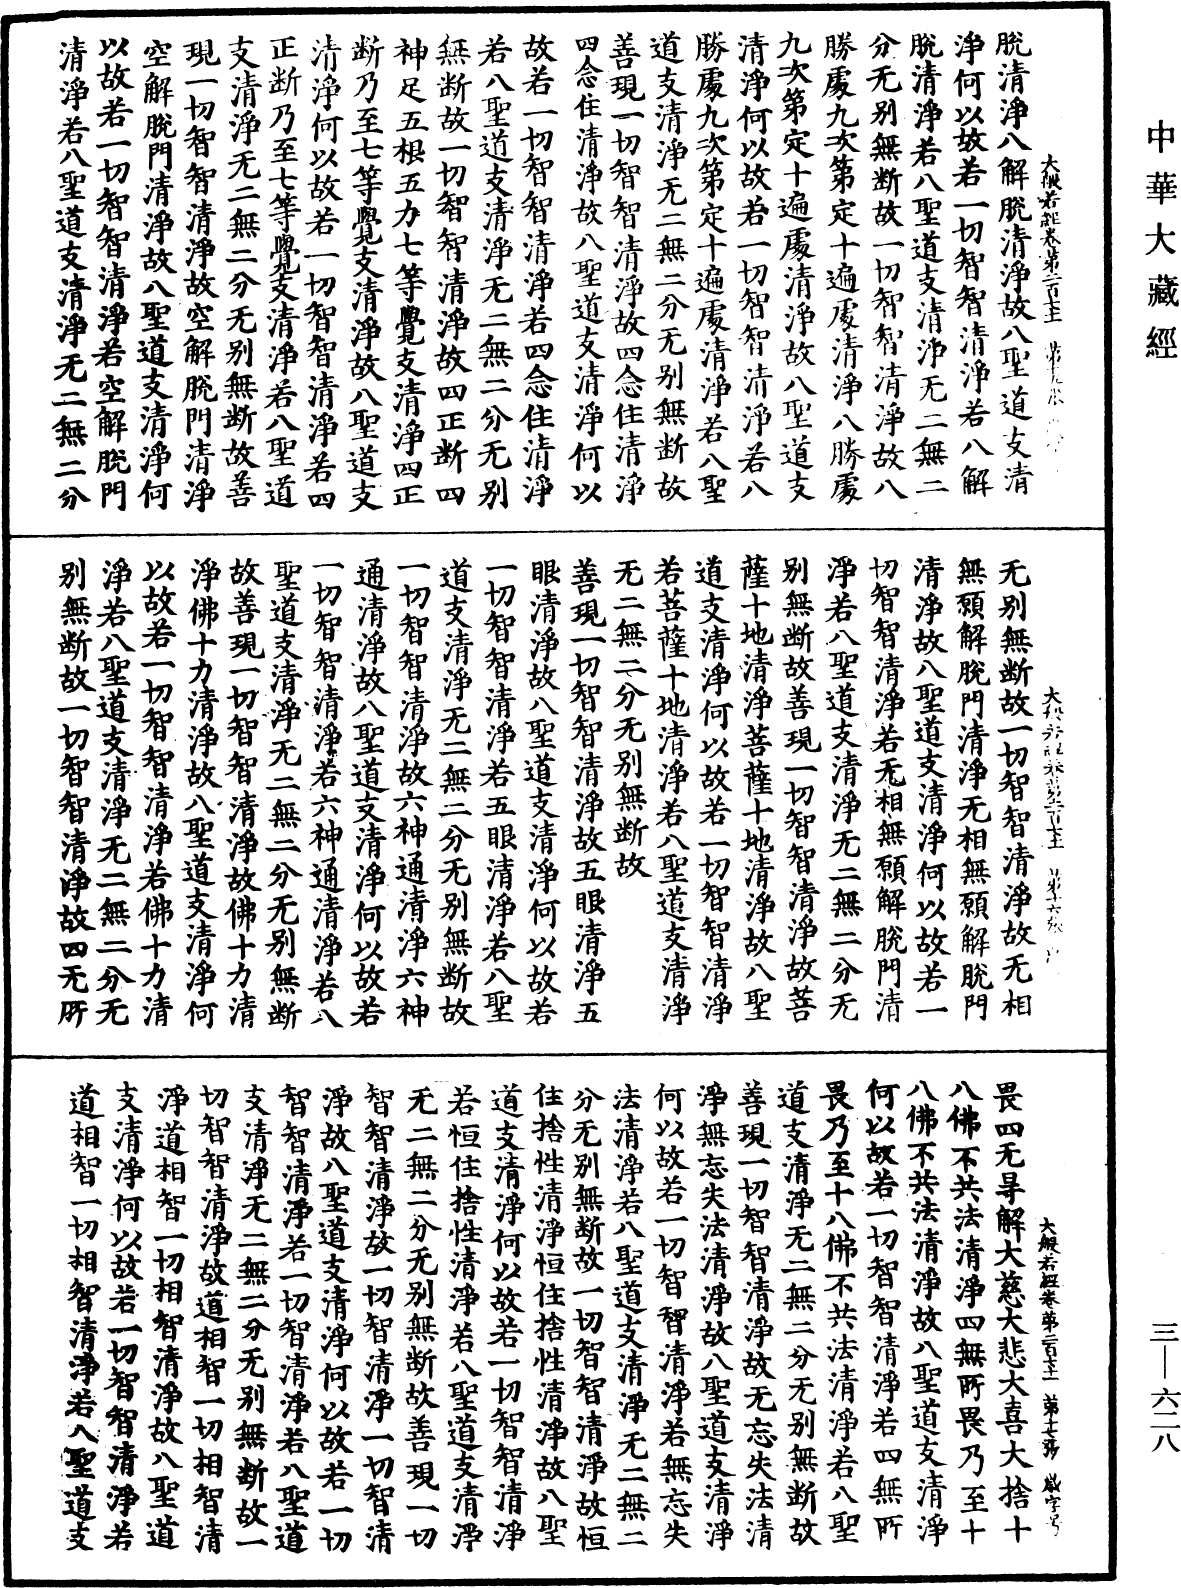 中華大藏經
脫清淨八解脫清淨故八聖道支清
淨何以故若一切智智清淨若八解
脫清淨若八聖道支清淨无二無二
分无别無断故一切智智清淨故八
勝處九次第定十遍處清淨八勝處
九次第定十遍處清淨故八聖道支
清淨何以故若一切智智清淨若八
勝處九次第定十遍處清淨若八聖
道支清淨无二無二分无别無断故
善現一切智智清淨故四念住清淨
四念住清淨故八聖道支清淨何以
故若一切智智清淨若四念住清淨
若八聖道支清淨无二無二分无别
無断故一切智智清淨故四正断四
神足五根五力七等覺支清淨四正
断乃至七等覺支清淨故八聖道支
清淨何以故若一切智智清淨若四
正断乃至七等覺支清淨若八聖道
支清淨无二無二分无别無断故善
現一切智智清淨故空解脫門清淨
空解脫門清淨故八聖道支清淨何
以故若一切智智清淨若空解脫門
清淨若八聖道支清淨无二無二分
无别無断故一切智智清淨故无相
無願解脫門清淨无相無願解脫門
清淨故八聖道支清淨何以故若一
切智智清淨若无相無願解脫門清
淨若八聖道支清淨无二無二分无
别無断故善現一切智智清淨故菩
薩十地清淨菩薩十地清淨故八聖
道支清淨何以故若一切智智清淨
若菩薩十地清淨若八聖道支清淨
无二無二分无别無断故
善現一切智智清淨故五眼清淨五
眼清淨故八聖道支清淨何以故若
一切智智清淨若五眼清淨若八聖
道支清淨无二無二分无别無断故
一切智智清淨故六神通清淨六神
通清淨故八聖道支清淨何以故若
一切智智清淨若六神通清淨若八
聖道支清淨无二無二分无别無断
故善現一切智智清淨故佛十力清
淨佛十力清淨故八聖道支清淨何
以故若一切智智清淨若佛十力清
淨若八聖道支清淨无二無二分无
别無断故一切智智清淨故四无所
畏四无导解大慈大悲大喜大捨十
八佛不共法清淨四無所畏乃至十
八佛不共法清淨故八聖道支清淨
何以故若一切智智清淨若四無所
畏乃至十八佛不共法清淨若八聖
道支清淨无二無二分无别無断故
善現一切智智清淨故无忘失法清
淨無忘失法清淨故八聖道支清淨
何以故若一切智智清淨若無忘失
法清淨若八聖道支清淨无二無二
分无别無断故一切智智清淨故恒
住捨性清淨恒住捨性清淨故八聖
道支清淨何以故若一切智智清淨
若恒住捨性清淨若八聖道支清淨
无二無二分无别無断故善現一切
智智清淨故一切智清淨一切智清
淨故八聖道支清淨何以故若一切
智智清淨若一切智清淨若八聖道
支清淨无二無二分无别無断故一
切智智清淨故道相智一切相智清
淨道相智一切相智清淨故八聖道
支清淨何以故若一切智智清淨若
道相智一切相智清淨若八聖道支
三—六二八